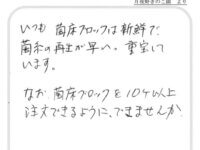 月夜野きのこ園 より
いつも 菌床ブロックは新鮮で
菌糸の再生が早い。重宝して
います。
なお 菌床ブロックを10ケ以上
注文できるように、できませんか